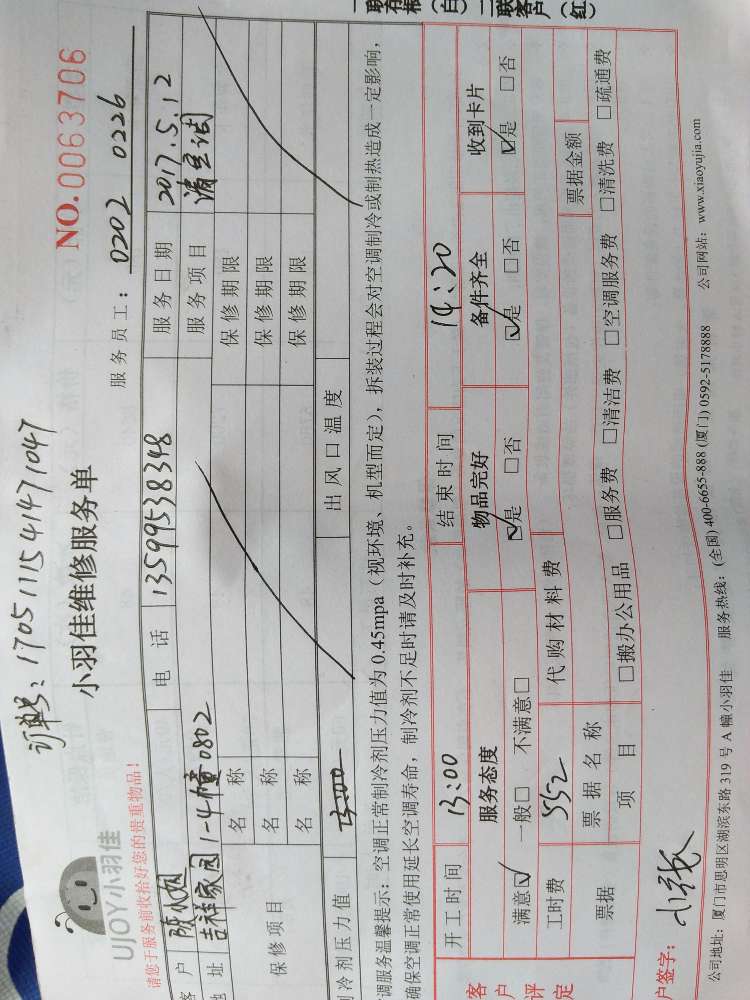 订单号：17051115414711047
UJOY小羽佳
小羽佳维修服务单
NO.0063706
请您于服务前收拾好您的贵重物品！
服务员工：0202 0226
客户 电话 13599538348 服务日期 2017.5.12
地址 吉祥家园1-4幢0802 服务项目
保修项目 名称 保修期限
名称 保修期限
名称 保修期限
制冷剂压力值 出风口温度
调服务温馨提示：空调正常制冷剂压力值为0.45mpa（视环境、机型而定），拆装过程会对空调制冷或制热造成一定影响，
确保空调正常使用延长空调寿命，制冷剂不足时请及时补充。
开工时间 13:00 结束时间 14:20
客户评定 服务态度 物品完好 备件齐全 收到卡片
满意☑ 一般□ 不满意□ ☑是 □否 ☑是 □否 ☑是 □否
工时费 552 代购材料费
票据 票据名称 票据金额
项目 □搬办公用品 □服务费 □清洁费 □空调服务费 □清洗费 □疏通费
户签字：小张
公司地址：厦门市思明区湖滨东路319号A幢小羽佳 服务热线：(全国) 400-6655-888 (厦门) 0592-5178888 公司网站：www.xiaoyujia.com
一联存根（白）二联客户（红）